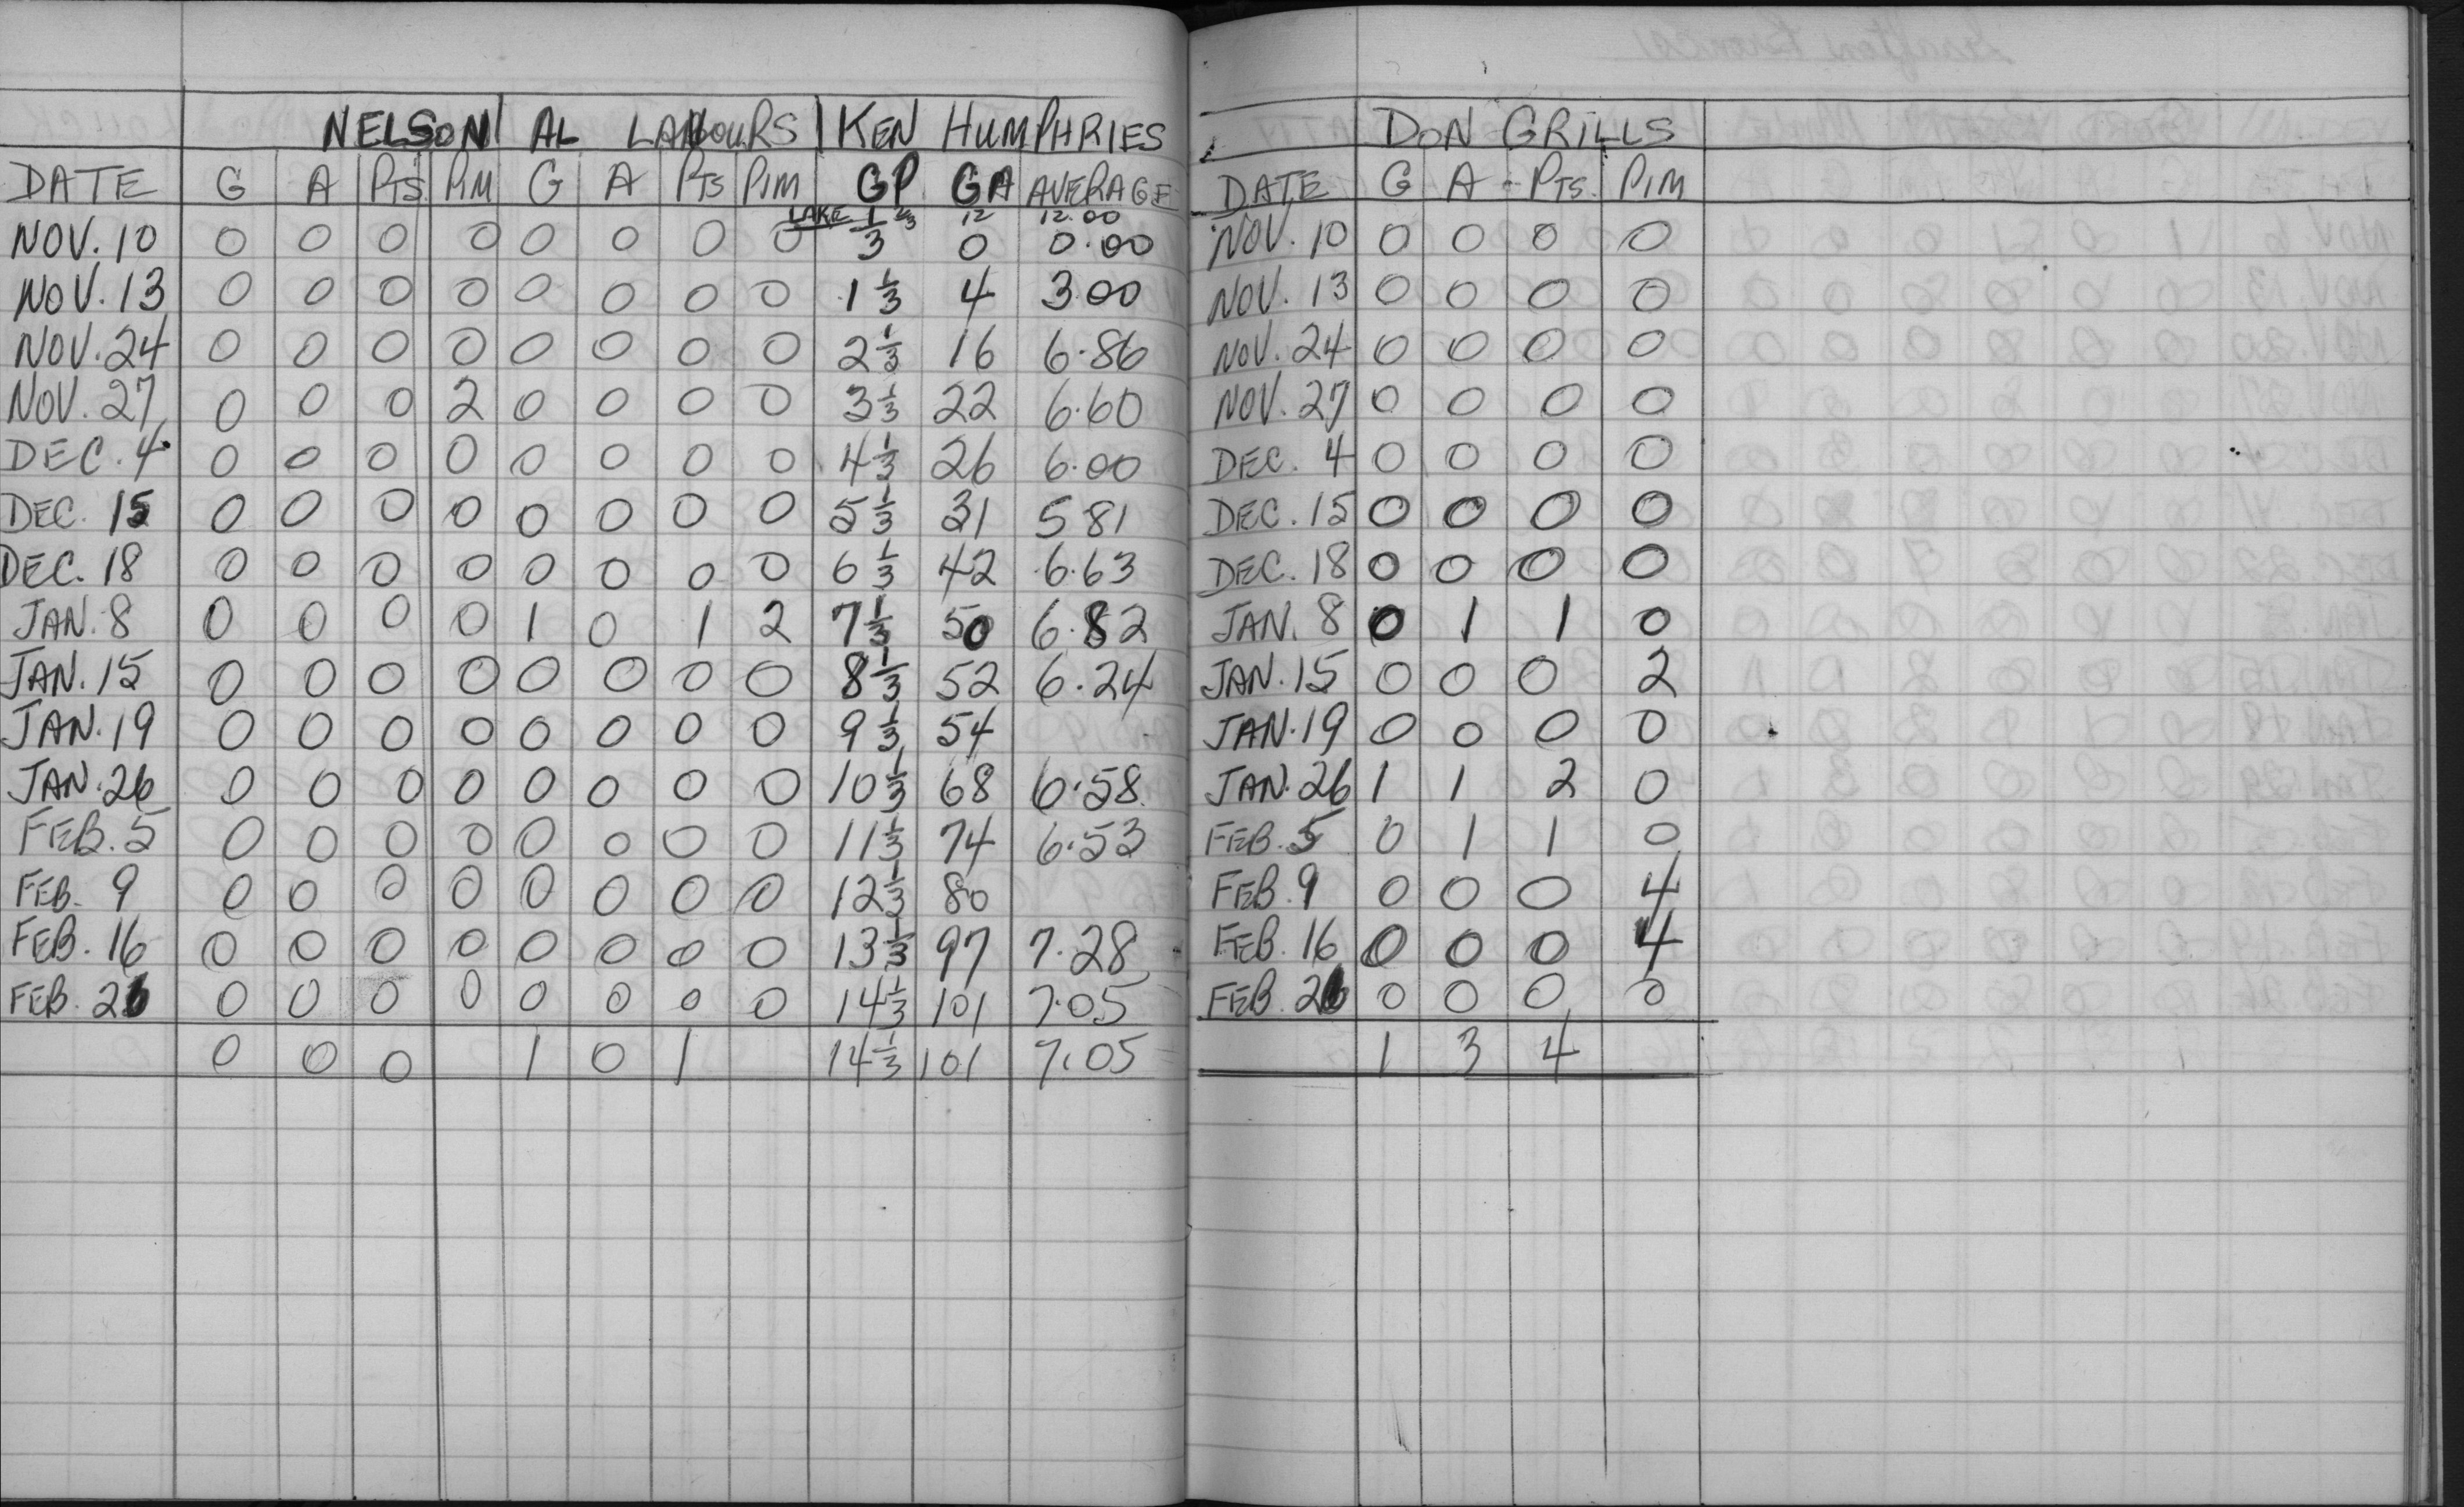 NELSON AL LABOURS KEN HUMPHRIES
DATE G A PTS PIM G A PTS PIM GP GA AVERAGE
LAKE 1 2/3 12 12.00
NOV. 10 0 0 0 0 0 0 0 0 1/3 0 0.00
NOV. 13 0 0 0 0 0 0 0 0 1 1/3 4 3.00
NOV. 24 0 0 0 0 0 0 0 0 2 1/3 16 6.86
NOV. 27 0 0 0 2 0 0 0 0 3 1/3 22 6.60
DEC. 4 0 0 0 0 0 0 0 0 4 1/3 26 6.00
DEC. 15 0 0 0 0 0 0 0 0 5 1/3 31 5.81
DEC. 18 0 0 0 0 0 0 0 0 6 1/3 42 6.63
JAN. 8 0 0 0 0 1 0 1 2 7 1/3 50 6.82
JAN. 15 0 0 0 0 0 0 0 0 8 1/3 52 6.24
JAN. 19 0 0 0 0 0 0 0 0 9 1/3 54
JAN. 26 0 0 0 0 0 0 0 0 10 1/3 68 6.58
FEB. 5 0 0 0 0 0 0 0 0 11 1/3 74 6.53
FEB. 9 0 0 0 0 0 0 0 0 12 1/3 80
FEB. 16 0 0 0 0 0 0 0 0 13 1/3 97 7.28
FEB. 26 0 0 0 0 0 0 0 0 14 1/3 101 7.05
0 0 0 1 0 1 14 1/3 101 7.05
DON GRILLS
DATE G A PTS. PIM
NOV. 10 0 0 0 0
NOV. 13 0 0 0 0
NOV. 24 0 0 0 0
NOV. 27 0 0 0 0
DEC. 4 0 0 0 0
DEC. 15 0 0 0 0
DEC. 18 0 0 0 0
JAN. 8 0 1 1 0
JAN. 15 0 0 0 2
JAN. 19 0 0 0 0
JAN. 26 1 1 2 0
FEB. 5 0 1 1 0
FEB. 9 0 0 0 4
FEB. 16 0 0 0 4
FEB. 26 0 0 0 0
1 3 4